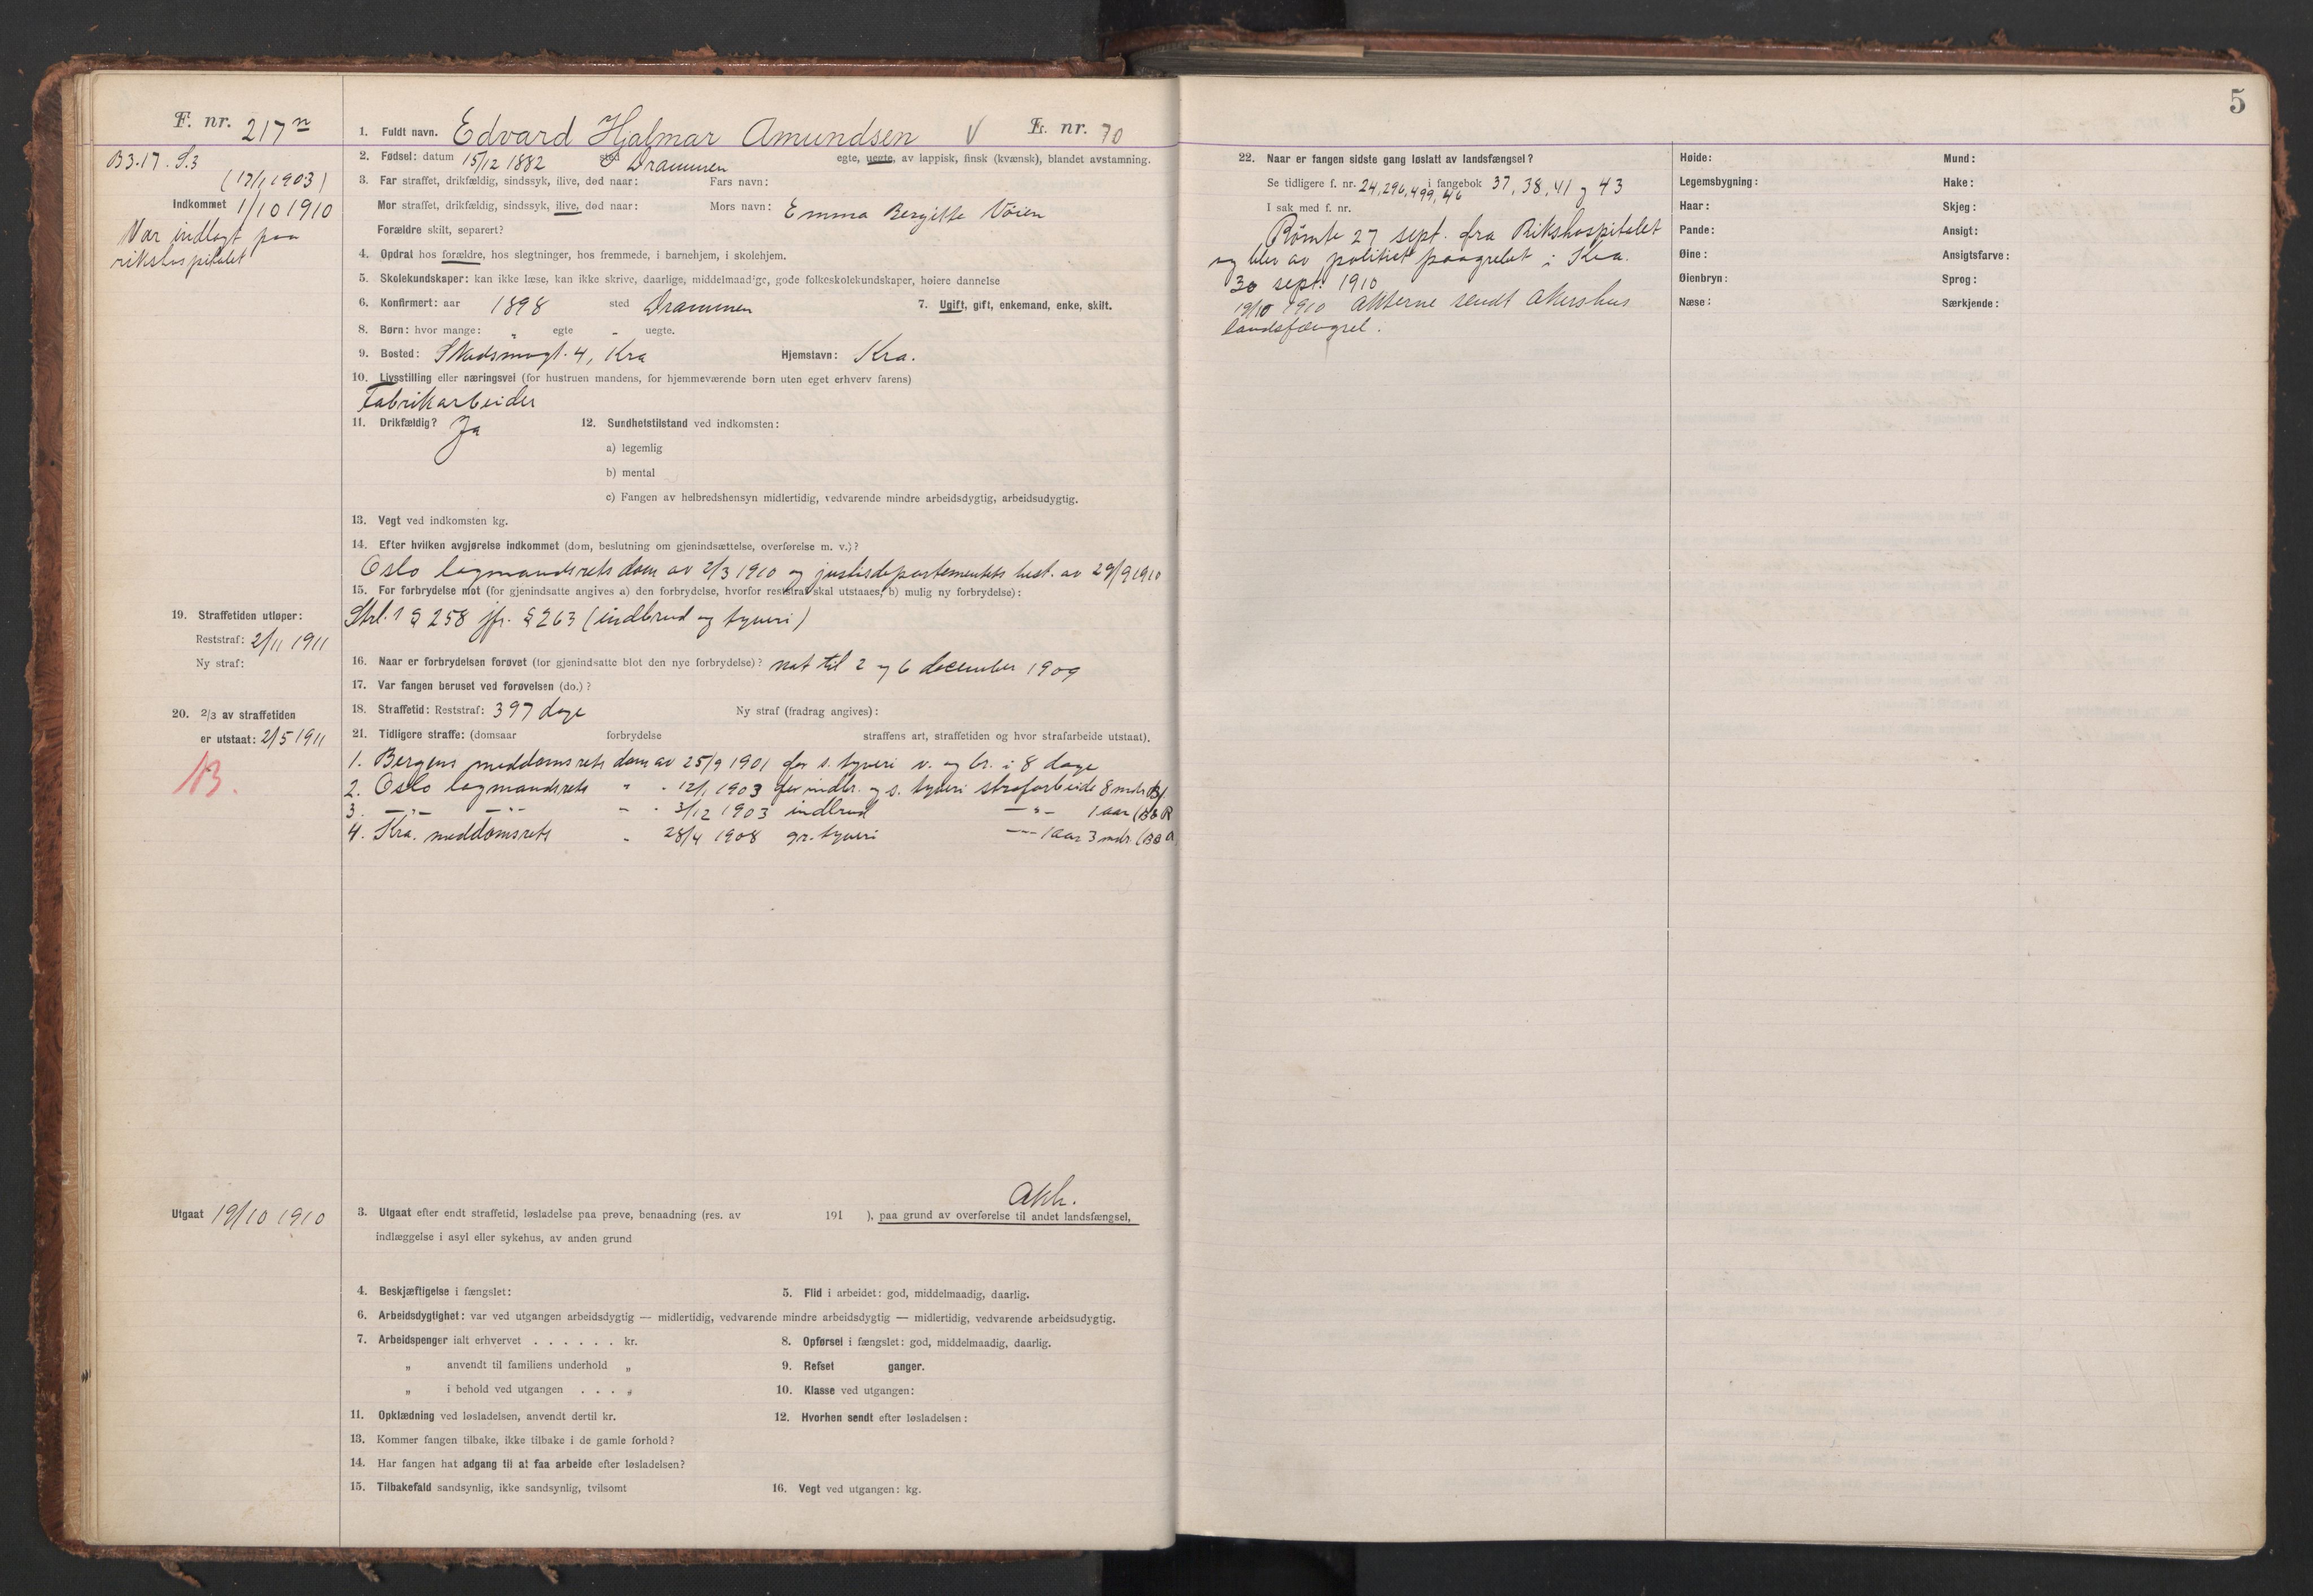 F. nr. 217 n
B3.17. S.3
(17/1 1903)
Indkommet 1/10 1910
Var indlagt paa
rikshospitalet
1. Fuldt navn. Edvard Hjalmar Amundsen V L. nr. 70
2. Fødsel: datum 15/12 1882 sted Drammen egte, uegte, av lappisk, finsk (kvænsk), blandet avstamning.
3. Far straffet, drikfældig, sindssyk, ilive, død naar: Fars navn:
Mor straffet, drikfældig, sindssyk, ilive, død naar: Mors navn: Emma Bergitte Vöien
Forældre skilt, separert?
4. Opdrat hos forældre, hos slegtninger, hos fremmede, i barnehjem, i skolehjem.
5. Skolekundskaper: kan ikke læse, kan ikke skrive, daarlige, middelmaadige, gode folkeskolekundskaper, høiere dannelse
6. Konfirmert: aar 1898 sted Drammen 7. Ugift, gift, enkemand, enke, skilt.
8. Børn: hvor mange: " egte " uegte.
9. Bosted: 4, Kra Hjemstavn: Kra.
10. Livsstilling eller næringsvei (for hustruen mandens, for hjemmeværende børn uten eget erhverv farens)
Fabrikarbeider
11. Drikfældig? Ja 12. Sundhetstilstand ved indkomsten:
a) legemlig
b) mental
c) Fangen av helbredshensyn midlertidig, vedvarende mindre arbeidsdygtig, arbeidsudygtig.
13. Vegt ved indkomsten kg.
14. Efter hvilken avgjørelse indkommet (dom, beslutning om gjenindsættelse, overførelse m. v.)?
Oslo lagmandsrets dom av 2/3 1910 og justisdepartementets best. av 29/9 1910
15. For forbrydelse mot (for gjenindsatte angives a) den forbrydelse, hvorfor reststraf skal utstaaes, b) mulig ny forbrydelse):
Strl. § 258 jfr. § 263 (indbrud og tyveri)
16. Naar er forbrydelsen forøvet (for gjenindsatte blot den nye forbrydelse)? nat til 2 og 6 december 1909
17. Var fangen beruset ved forøvelsen (do.)?
18. Straffetid: Reststraf: 397 dage Ny straf (fradrag angives):
19. Straffetiden utløper:
Reststraf: 2/11 1911
Ny straf:
20. 2/3 av straffetiden
er utstaat: 2/5 1911
B.
21. Tidligere straffe: (domsaar forbrydelse straffens art, straffetiden og hvor strafarbeide utstaat).
1. Bergens meddomsrets dom av 25/9 1901 for s. tyveri v. og br. i 8 dage
2. Oslo lagmandsrets " " 12/1 1903 for indbr. og s. tyveri strafarbeide 8 mdr.
3. —"— —"— " " 3/12 1903 indbrud —"— 1 aar
4. Kra. meddomsrets " 28/4 1908 gr. tyveri —"— 1 aar 3 mdr.
Utgaat 19/10 1910
Akh.
3. Utgaat efter endt straffetid, løsladelse paa prøve, benaadning (res. av 191 ), paa grund av overførelse til andet landsfængsel,
indlæggelse i asyl eller sykehus, av anden grund
4. Beskjæftigelse i fængslet: 5. Flid i arbeidet: god, middelmaadig, daarlig.
6. Arbeidsdygtighet: var ved utgangen arbeidsdygtig — midlertidig, vedvarende mindre arbeidsdygtig — midlertidig, vedvarende arbeidsudygtig.
7. Arbeidspenger ialt erhvervet . . . . . . kr. 8. Opførsel i fængslet: god, middelmaadig, daarlig.
" anvendt til familiens underhold " 9. Refset ganger.
" i behold ved utgangen . . . " 10. Klasse ved utgangen:
11. Opklædning ved løsladelsen, anvendt dertil kr. 12. Hvorhen sendt efter løsladelsen:
13. Kommer fangen tilbake, ikke tilbake i de gamle forhold?
14. Har fangen hat adgang til at faa arbeide efter løsladelsen?
15. Tilbakefald sandsynlig, ikke sandsynlig, tvilsomt 16. Vegt ved utgangen: kg.
5
22. Naar er fangen sidste gang løslatt av landsfængsel?
Se tidligere f. nr. 24, 296, 499, 46 i fangebok 37, 38, 41 og 43
I sak med f. nr.
Rømte 27 sept. fra Rikshospitalet
og blev av politiet paagrebet i Kra.
30 sept. 1910
19/10 1910 Akterne sendt Akershus
landsfængsel.
Høide: Mund:
Legemsbygning: Hake:
Haar: Skjeg:
Pande: Ansigt:
Øine: Ansigtsfarve:
Øienbryn: Sprog:
Næse: Særkjende: